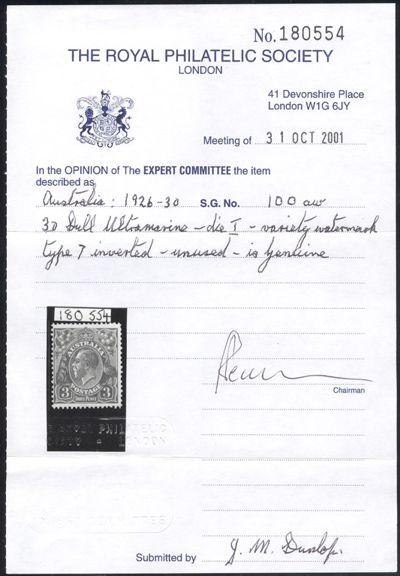 No. 180554
THE ROYAL PHILATELIC SOCIETY
LONDON
41 Devonshire Place
London W1G 6JY
Meeting of 31 OCT 2001
In the OPINION of The EXPERT COMMITTEE the item
described as
Australia: 1926-30 S.G. No. 100 aw
3D Dull Ultramarine - die I - variety watermark
type 7 inverted - unused - is genuine
180 554
AUSTRALIA
POSTAGE
3 3
THREE PENCE
ROYAL PHILATELIC
LONDON
Chairman
COMMITTEE
Submitted by J. M. Dunlop.